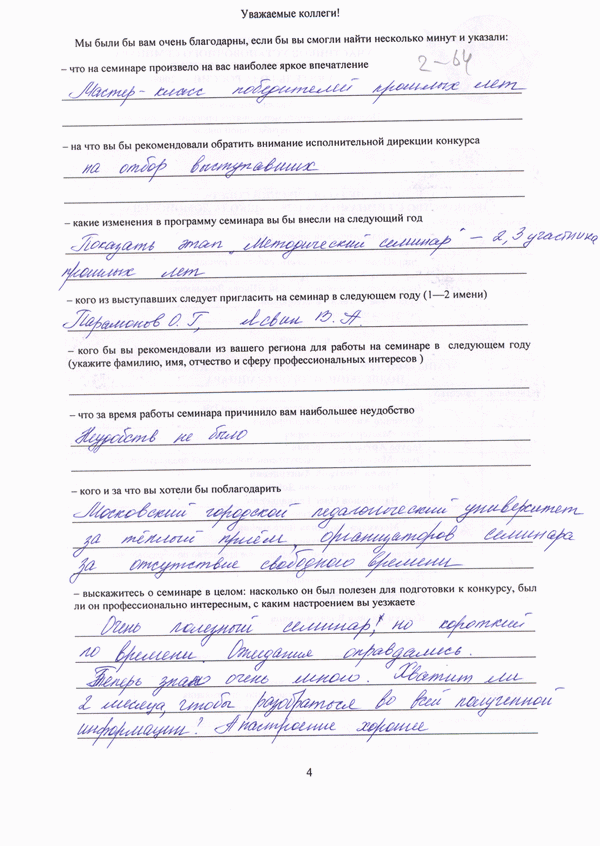 Уважаемые коллеги!
Мы были бы вам очень благодарны, если бы вы смогли найти несколько минут и указали:
2-64
– что на семинаре произвело на вас наиболее яркое впечатление
Мастер-класс победителей прошлых лет
– на что вы бы рекомендовали обратить внимание исполнительной дирекции конкурса
на отбор выступавших
– какие изменения в программу семинара вы бы внесли на следующий год
Показать этап „Методический семинар" – 2, 3 участника
прошлых лет
– кого из выступавших следует пригласить на семинар в следующем году (1—2 имени)
Парамонов О. Г., Лсвин В. А.
– кого бы вы рекомендовали из вашего региона для работы на семинаре в следующем году
(укажите фамилию, имя, отчество и сферу профессиональных интересов )
– что за время работы семинара причинило вам наибольшее неудобство
Неудобств не было
– кого и за что вы хотели бы поблагодарить
Московский городской педагогический университет
за тёплый приём, организаторов семинара
за отсутствие свободного времени
– выскажитесь о семинаре в целом: насколько он был полезен для подготовки к конкурсу, был
ли он профессионально интересным, с каким настроением вы уезжаете
Очень полезный семинар, но короткий
по времени. Ожидания оправдались.
Теперь знаю очень много. Хватит ли
2 месяца, чтобы разобраться во всей полученной
информации? А настроение хорошее
4